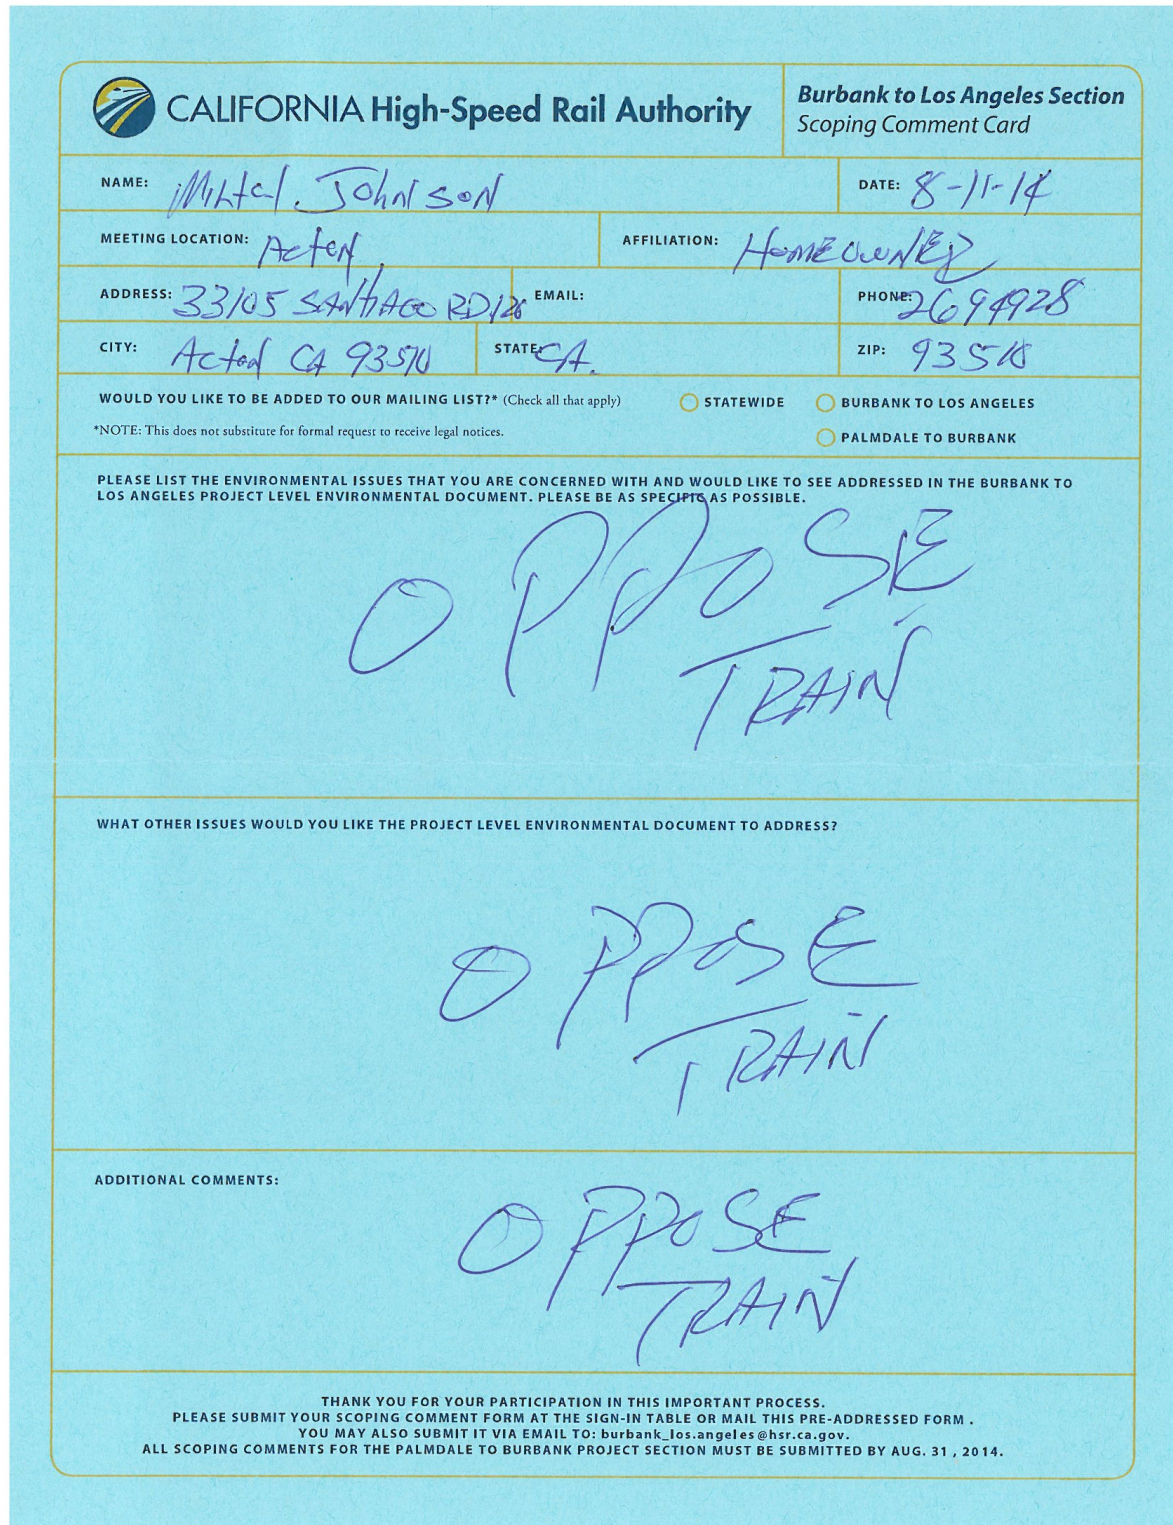 CALIFORNIA High-Speed Rail Authority
Burbank to Los Angeles Section
Scoping Comment Card
NAME: Johnson
DATE: 8-11-14
MEETING LOCATION: Acton
AFFILIATION: HOMEOWNER
ADDRESS: 33105 SANTIAGO RD
EMAIL:
PHONE: 2694928
CITY: Acton CA 93510
STATE: CA.
ZIP: 93510
WOULD YOU LIKE TO BE ADDED TO OUR MAILING LIST?* (Check all that apply)
STATEWIDE
BURBANK TO LOS ANGELES
*NOTE: This does not substitute for formal request to receive legal notices.
PALMDALE TO BURBANK
PLEASE LIST THE ENVIRONMENTAL ISSUES THAT YOU ARE CONCERNED WITH AND WOULD LIKE TO SEE ADDRESSED IN THE BURBANK TO
LOS ANGELES PROJECT LEVEL ENVIRONMENTAL DOCUMENT. PLEASE BE AS SPECIFIC AS POSSIBLE.
OPPOSE
TRAIN
WHAT OTHER ISSUES WOULD YOU LIKE THE PROJECT LEVEL ENVIRONMENTAL DOCUMENT TO ADDRESS?
OPPOSE
TRAIN
ADDITIONAL COMMENTS:
OPPOSE
TRAIN
THANK YOU FOR YOUR PARTICIPATION IN THIS IMPORTANT PROCESS.
PLEASE SUBMIT YOUR SCOPING COMMENT FORM AT THE SIGN-IN TABLE OR MAIL THIS PRE-ADDRESSED FORM .
YOU MAY ALSO SUBMIT IT VIA EMAIL TO: burbank_los.angeles@hsr.ca.gov.
ALL SCOPING COMMENTS FOR THE PALMDALE TO BURBANK PROJECT SECTION MUST BE SUBMITTED BY AUG. 31 , 2014.